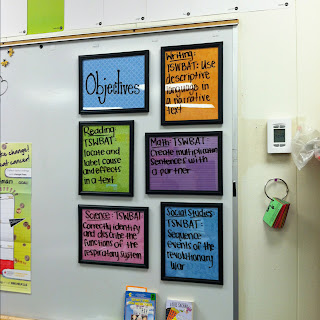 Objectives
Writing:
TSWBAT: Use
descriptive
language in
a narrative
text
Reading:
TSWBAT
locate and
label cause
and effects
in a text
Math: TSWBAT
Create multiplication
Sentences with
a partner
Science: TSWBAT
Correctly identify
and describe the
functions of the
respiratory system
Social Studies:
TSWBAT:
Sequence
events of the
revolutionary
war